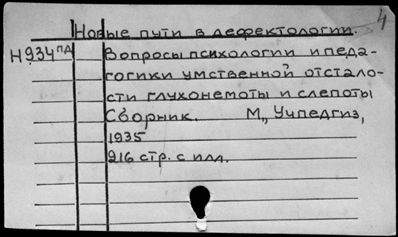 4
Новые пути в дефектологии.
Н934пд Вопросы психологии и педа-
гогики умственной отстало-
сти глухонемоты и слепоты
Сборник. М., Учпедгиз,
1935
216 стр. с илл.